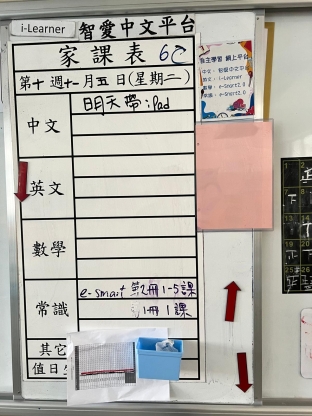 i-Learner 智愛中文平台
家課表 6C
第十週十一月五日(星期二)
中文 明天帶:iPad
英文
數學
常識 e-smart 第2冊1-5課
冊1課
其它
值日
主學習 網上平台
中文: 智愛中文平台
英文: i-Learner
數學: e-Smart2.0
常識: e-Smart2.0